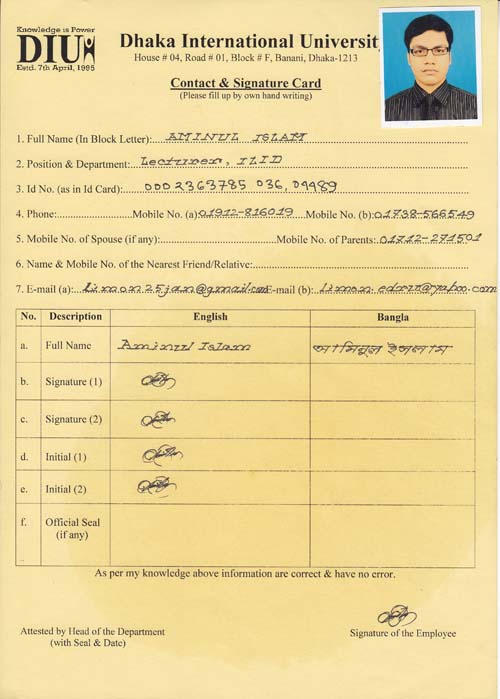 Knowledge is Power
DIU
Estd. 7th April, 1995
Dhaka International University
House # 04, Road # 01, Block # F, Banani, Dhaka-1213
Contact & Signature Card
(Please fill up by own hand writing)
1. Full Name (In Block Letter): AMINUL ISLAM
2. Position & Department: Lecturer,
3. Id No. (as in Id Card): 0002363785 036, 09489
4. Phone: Mobile No. (a): 01912-816019 Mobile No. (b): 01738-566549
5. Mobile No. of Spouse (if any): Mobile No. of Parents: 01712-271501
6. Name & Mobile No. of the Nearest Friend/Relative:
7. E-mail (a): limon25jan@gmail.com E-mail (b):
No. Description English Bangla
a. Full Name Aminul Islam আমিনুল ইসলাম
b. Signature (1)
c. Signature (2)
d. Initial (1)
e. Initial (2)
f. Official Seal
(if any)
As per my knowledge above information are correct & have no error.
Attested by Head of the Department
(with Seal & Date)
Signature of the Employee